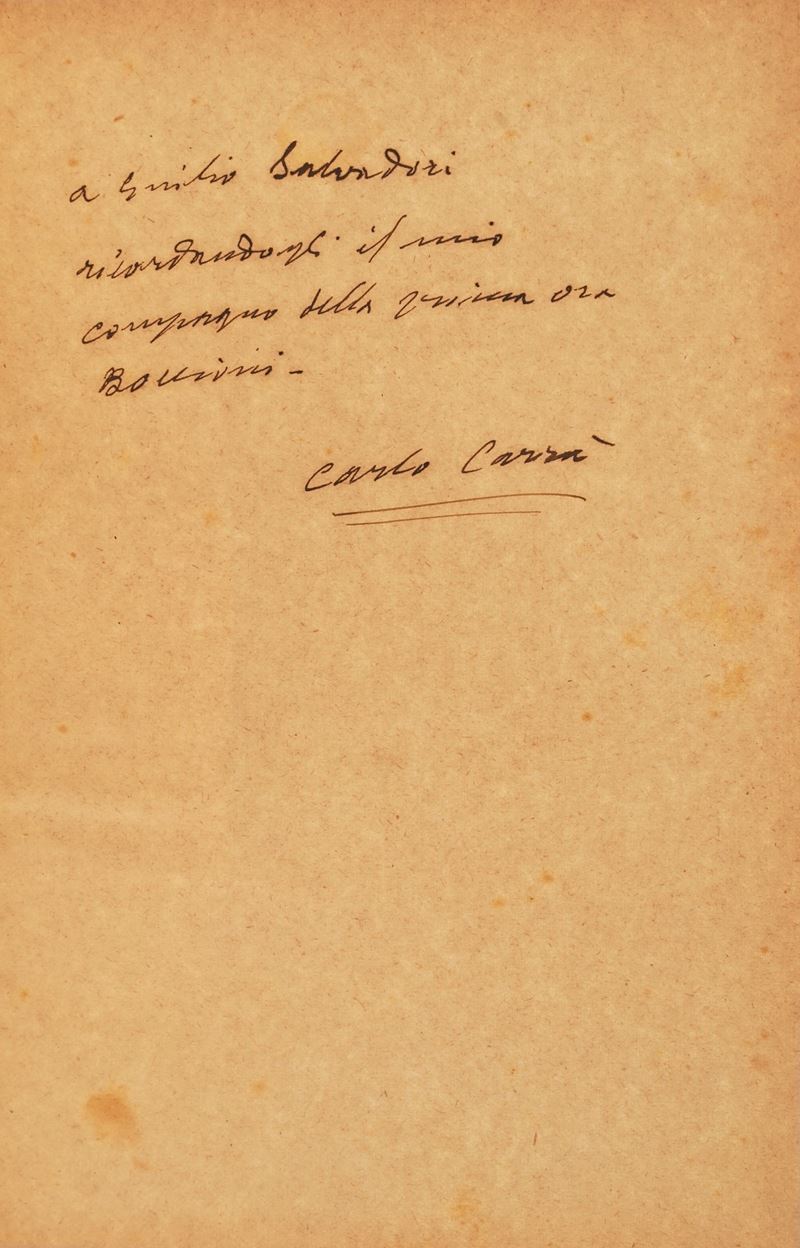 a Giulio Salvadori
ricordandogli il mio
compagno della prima ora
Boccioni -
Carlo Carrà